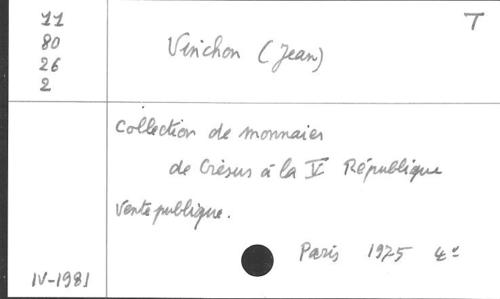 11
80
26
2
T
Vinchon (Jean)
Collection de monnaies
de Crésus à la V République
Vente publique.
Paris 1975 4°
IV-1981